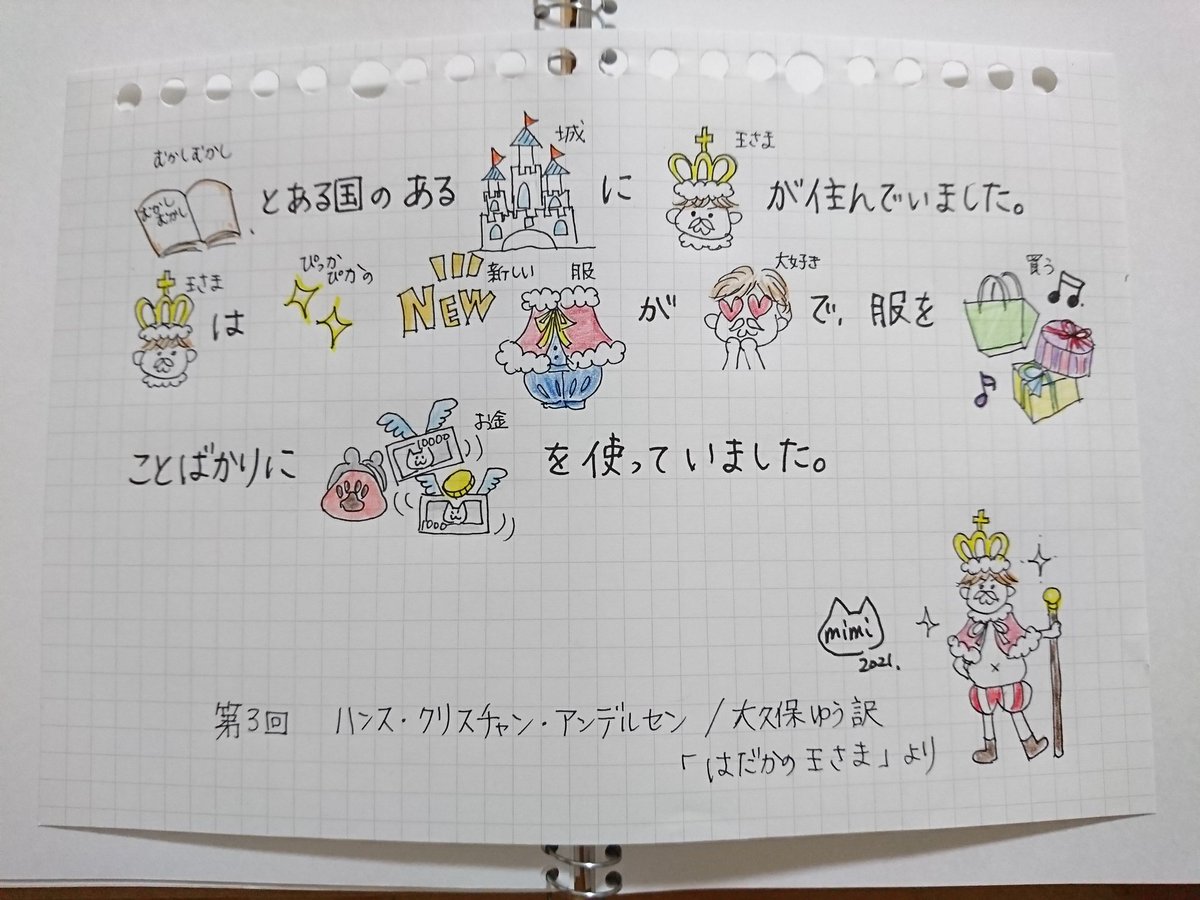 むかしむかし
むかし
むかし
とある国のある
城
に
王さま
が住んでいました。
王さま
は
ぴっか
ぴかの
NEW
新しい 服
が
大好き
で、服を
買う
ことばかりに
10000
1000
お金
を使っていました。
mimi
2021.
第3回 ハンス・クリスチャン・アンデルセン / 大久保ゆう訳
「はだかの王さま」より